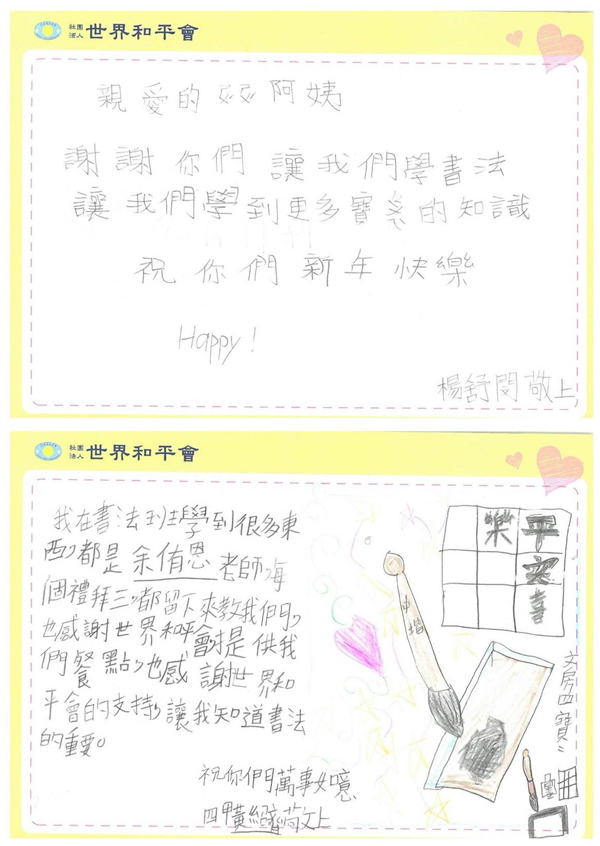 社團法人 世界和平會
親愛的叔叔阿姨
謝謝你們 讓我們學書法
讓我們學到更多寶貴的知識
祝你們新年快樂
Happy!
楊舒閔敬上
社團法人 世界和平會
我在書法班學到很多東
西,都是余侑恩老師,每
個禮拜三,都留下來教我們,
也感謝世界和平會,提供我
們餐點,也感謝世界和
平會的支持,讓我知道書法
的重要。
祝你們萬事如意
四甲黃 敬上
平安喜
樂
中楷
文房四寶